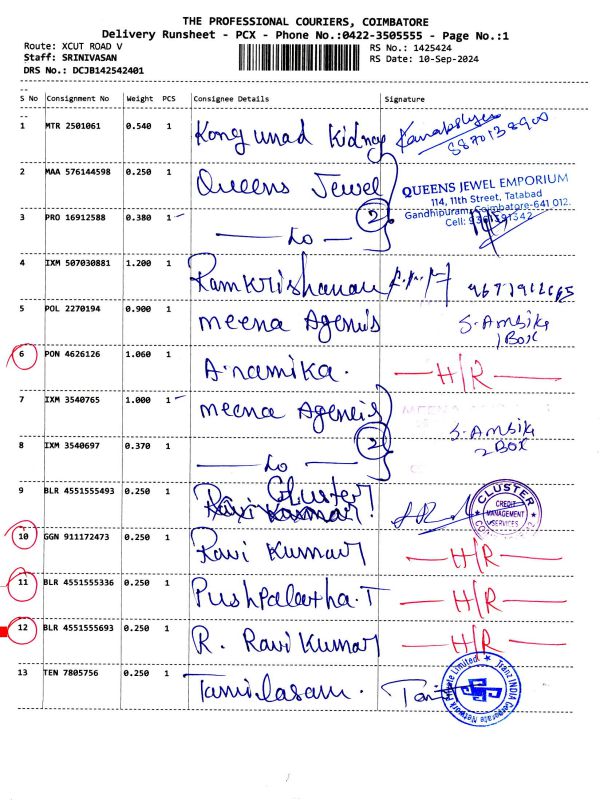 THE PROFESSIONAL COURIERS, COIMBATORE
Delivery Runsheet - PCX - Phone No.:0422-3505555 - Page No.:1
Route: XCUT ROAD V RS No.: 1425424
Staff: SRINIVASAN RS Date: 10-Sep-2024
DRS No.: DCJB142542401
S No Consignment No Weight PCS Consignee Details Signature
1 MTR 2501061 0.540 1 Kongunad Kidney
8870138900
2 MAA 576144598 0.250 1 Queens Jewel
QUEENS JEWEL EMPORIUM
114, 11th Street, Tatabad
Gandhipuram, Coimbatore-641 012.
3 PRO 16912588 0.380 1 — Do — 2
Cell:
4 IXM 507030881 1.200 1 Ramkrishanan
5 POL 2270194 0.900 1 meena Agencis S. Ambika
1 Box
6 PON 4626126 1.060 1 A.namika. — H/R —
7 IXM 3540765 1.000 1 meena Agencis
S. Ambika
8 IXM 3540697 0.370 1 — Do — 2 2 Box
9 BLR 4551555493 0.250 1 Cluster
CLUSTER
CREDIT
MANAGEMENT
SERVICES
10 GGN 911172473 0.250 1 Ravi Kumar — H/R —
11 BLR 4551555336 0.250 1 Pushpalatha.T — H/R —
12 BLR 4551555693 0.250 1 R. Ravi Kumar — H/R —
13 TEN 7805756 0.250 1 Tamilasam.
Tranz INDIA Corporate Network Private Limited